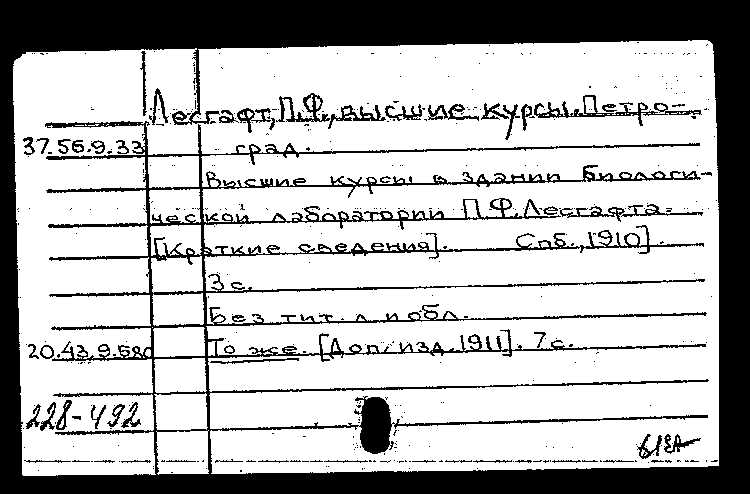 Лесгафт, П.Ф., высшие курсы. Петро-
37.56.9.33 град.
Высшие курсы в здании Биологи-
ческой лаборатории П.Ф.Лесгафта.
[Краткие сведения]. Спб., 1910].
3 с.
Без тит. л. и обл.
20.43.9.580 То же. [Доп. изд. 1911]. 7 с.
228-492